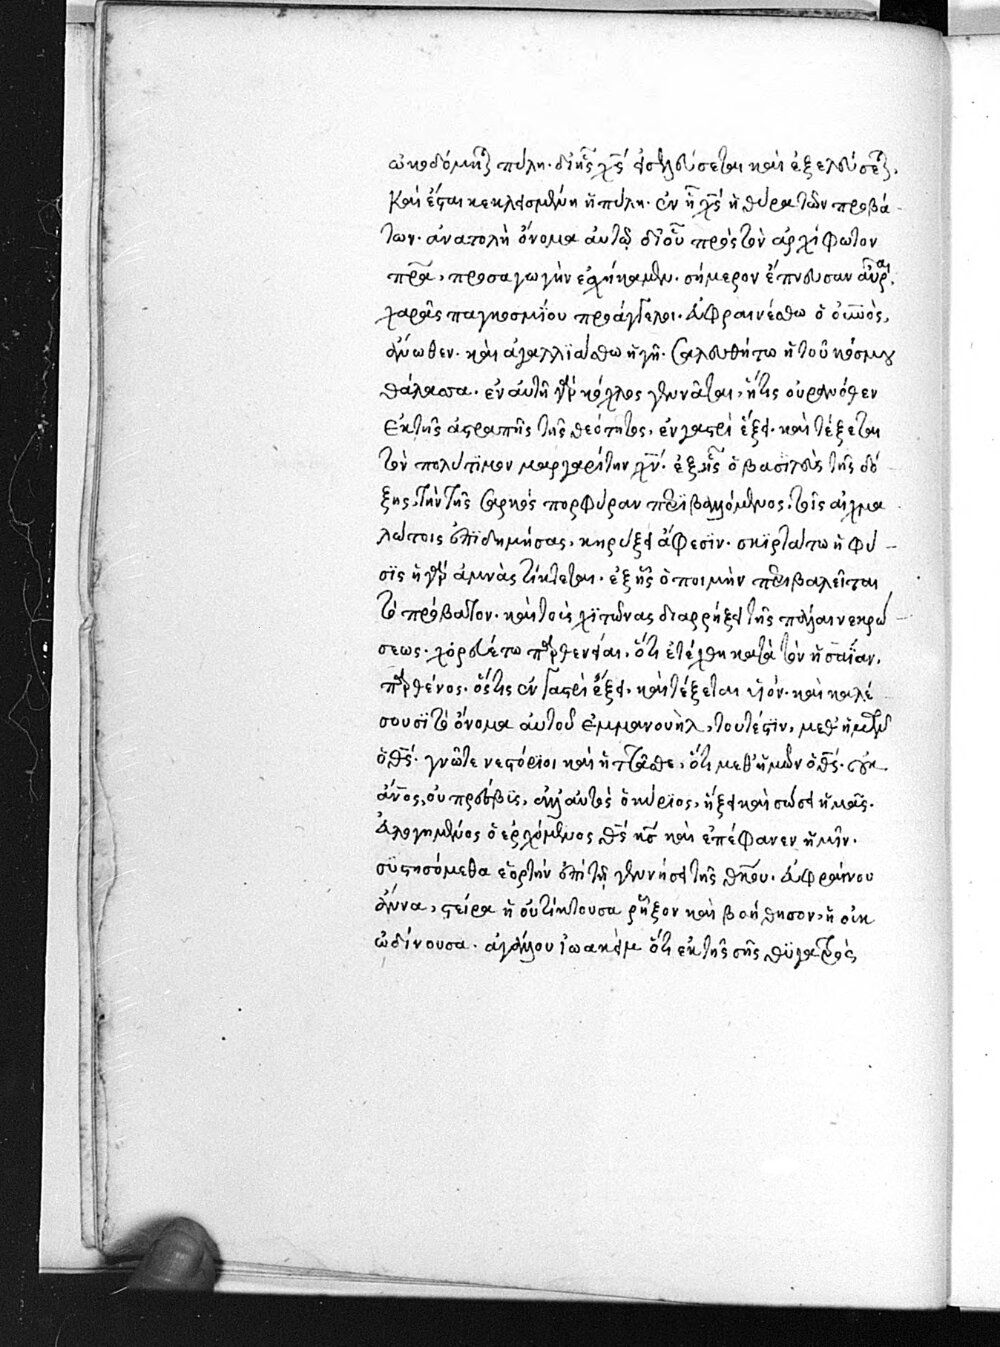 ὠκοδόμηται πύλη· δι' ἧς χς εἰσελεύσεται καὶ ἐξελεύσεται.
Καὶ ἔσται κεκλεισμένη ἡ πύλη· ἐν ᾗ χς ἡ θύρα τῶν προβά-
των· ἀνατολὴ ὄνομα αὐτῷ δι' οὗ πρὸς τὸν ἀρχίφωτον
πρα, προσαγωγὴν ἐσχήκαμεν· σήμερον ἔπνευσαν αὖραι,
χαρᾶς παγκοσμίου προάγγελοι· εὐφραινέσθω ὁ οὐνος,
ἄνωθεν· καὶ ἀγαλλιάσθω ἡ γῆ· σαλευθήτω ἡ τοῦ κόσμου
θάλασσα· ἐν αὐτῇ γὰρ κόχλος γεννᾶται, ἥτις οὐρανόθεν
ἐκ τῆς ἀστραπῆς τῆς θεότητος, ἐν γαστρὶ ἕξει· καὶ τέξεται
τὸν πολύτιμον μαργαρίτην χν· ἐξ ἧς ὁ βασιλεὺς τῆς δό
ξης, τὴν τῆς σαρκὸς πορφύραν περιβαλλόμενος, τοῖς αἰχμα
λώτοις ἐπιδημήσας, κηρύξει ἄφεσιν· σκιρτάτω ἡ φύ-
σις ἡ γὰρ ἀμνὰς τίκτεται· ἐξ ἧς ὁ ποιμὴν περιβαλεῖται
τὸ πρόβατον· καὶ τοὺς χιτῶνας διαρρήξει τῆς παλαι νεκρώ
σεως· χορευέτω παρθενίαι, ὅτι ἐτέχθη κατὰ τὸν ἠσαΐαν,
παρθένος· ὅστις ἐν γαστρὶ ἕξει, καὶ τέξεται υἱόν· καὶ καλέ
σουσι τὸ ὄνομα αὐτοῦ ἐμμανουὴλ, τουτέστιν, μεθ' ἡμῶν
ὁ θς· γνῶτε νεστόριοι καὶ ἡττᾶσθε, ὅτι μεθ' ἡμῶν ὁ θς· οὐκ
ἄνος, οὐ πρέσβις, ἀλλ' αὐτὸς ὁ κύριος, ἥξει καὶ σώσει ἡμᾶς·
Εὐλογημένος ὁ ἐρχόμενος θς κς καὶ ἐπέφανεν ἡμῖν·
συστησόμεθα ἑορτὴν ἐπὶ τῇ γεννήσει τῆς θκου· εὐφραίνου
ἄννα, στείρα ἡ οὐ τίκτουσα ῥῆξον καὶ βοήθησον, ἡ οὐκ
ὠδίνουσα· ἀγάλλου ἰωακεὶμ ὅτι ἐκ τῆς σῆς θυγατρὸς